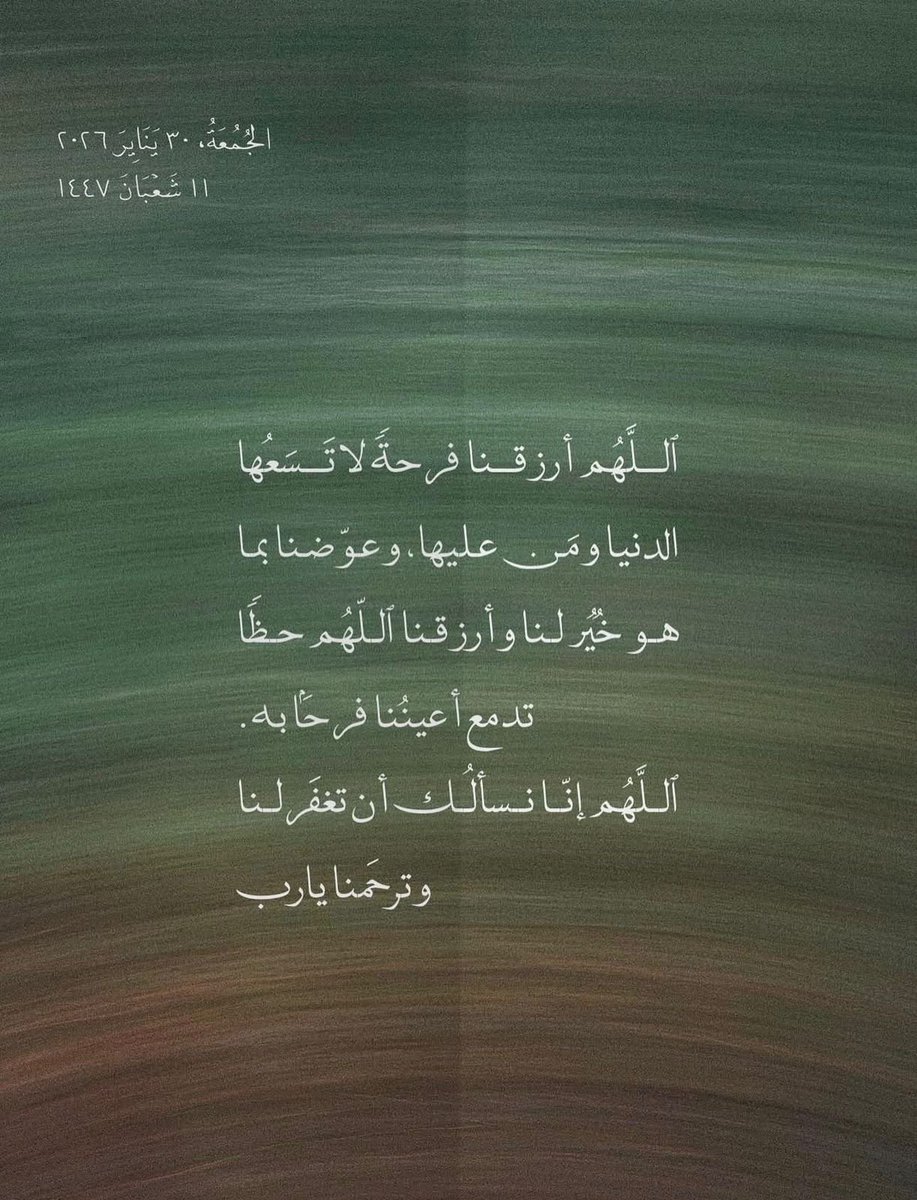 الجُمُعَةُ، ٣٠ يَنَايِرَ ٢٠٢٦
١١ شَعْبَانَ ١٤٤٧
ٱللَّهُم أرزقنا فرحةً لا تَسَعُها
الدنيا ومَن عليها، وعوّضنا بما
هو خَيْرٌ لنا وأرزقنا ٱللّهُم حظًا
تدمع أعينُنا فرحًا به.
ٱللَّهُم إنّا نسألُك أن تغفَر لنا
وترحَمنا يارب